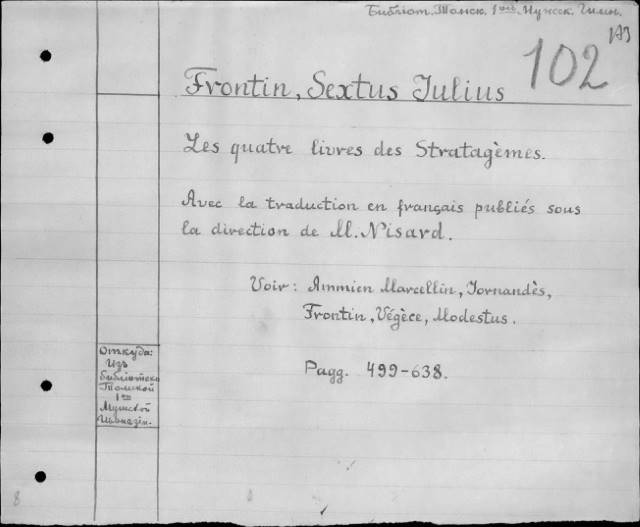 Библіот. Томск. 1ой Мужск. Гимн.
102
Frontin, Sextus Julius
Les quatre livres des Stratagèmes.
Avec la traduction en français publiés sous
la direction de M. Nisard.
Voir: Ammien Marcellin, Jornandès,
Frontin, Végèce, Modestus.
Pagg. 499-638.
Откуда:
Изъ
библіотеки
Томской
1ой
Мужской
Гимназіи.
8